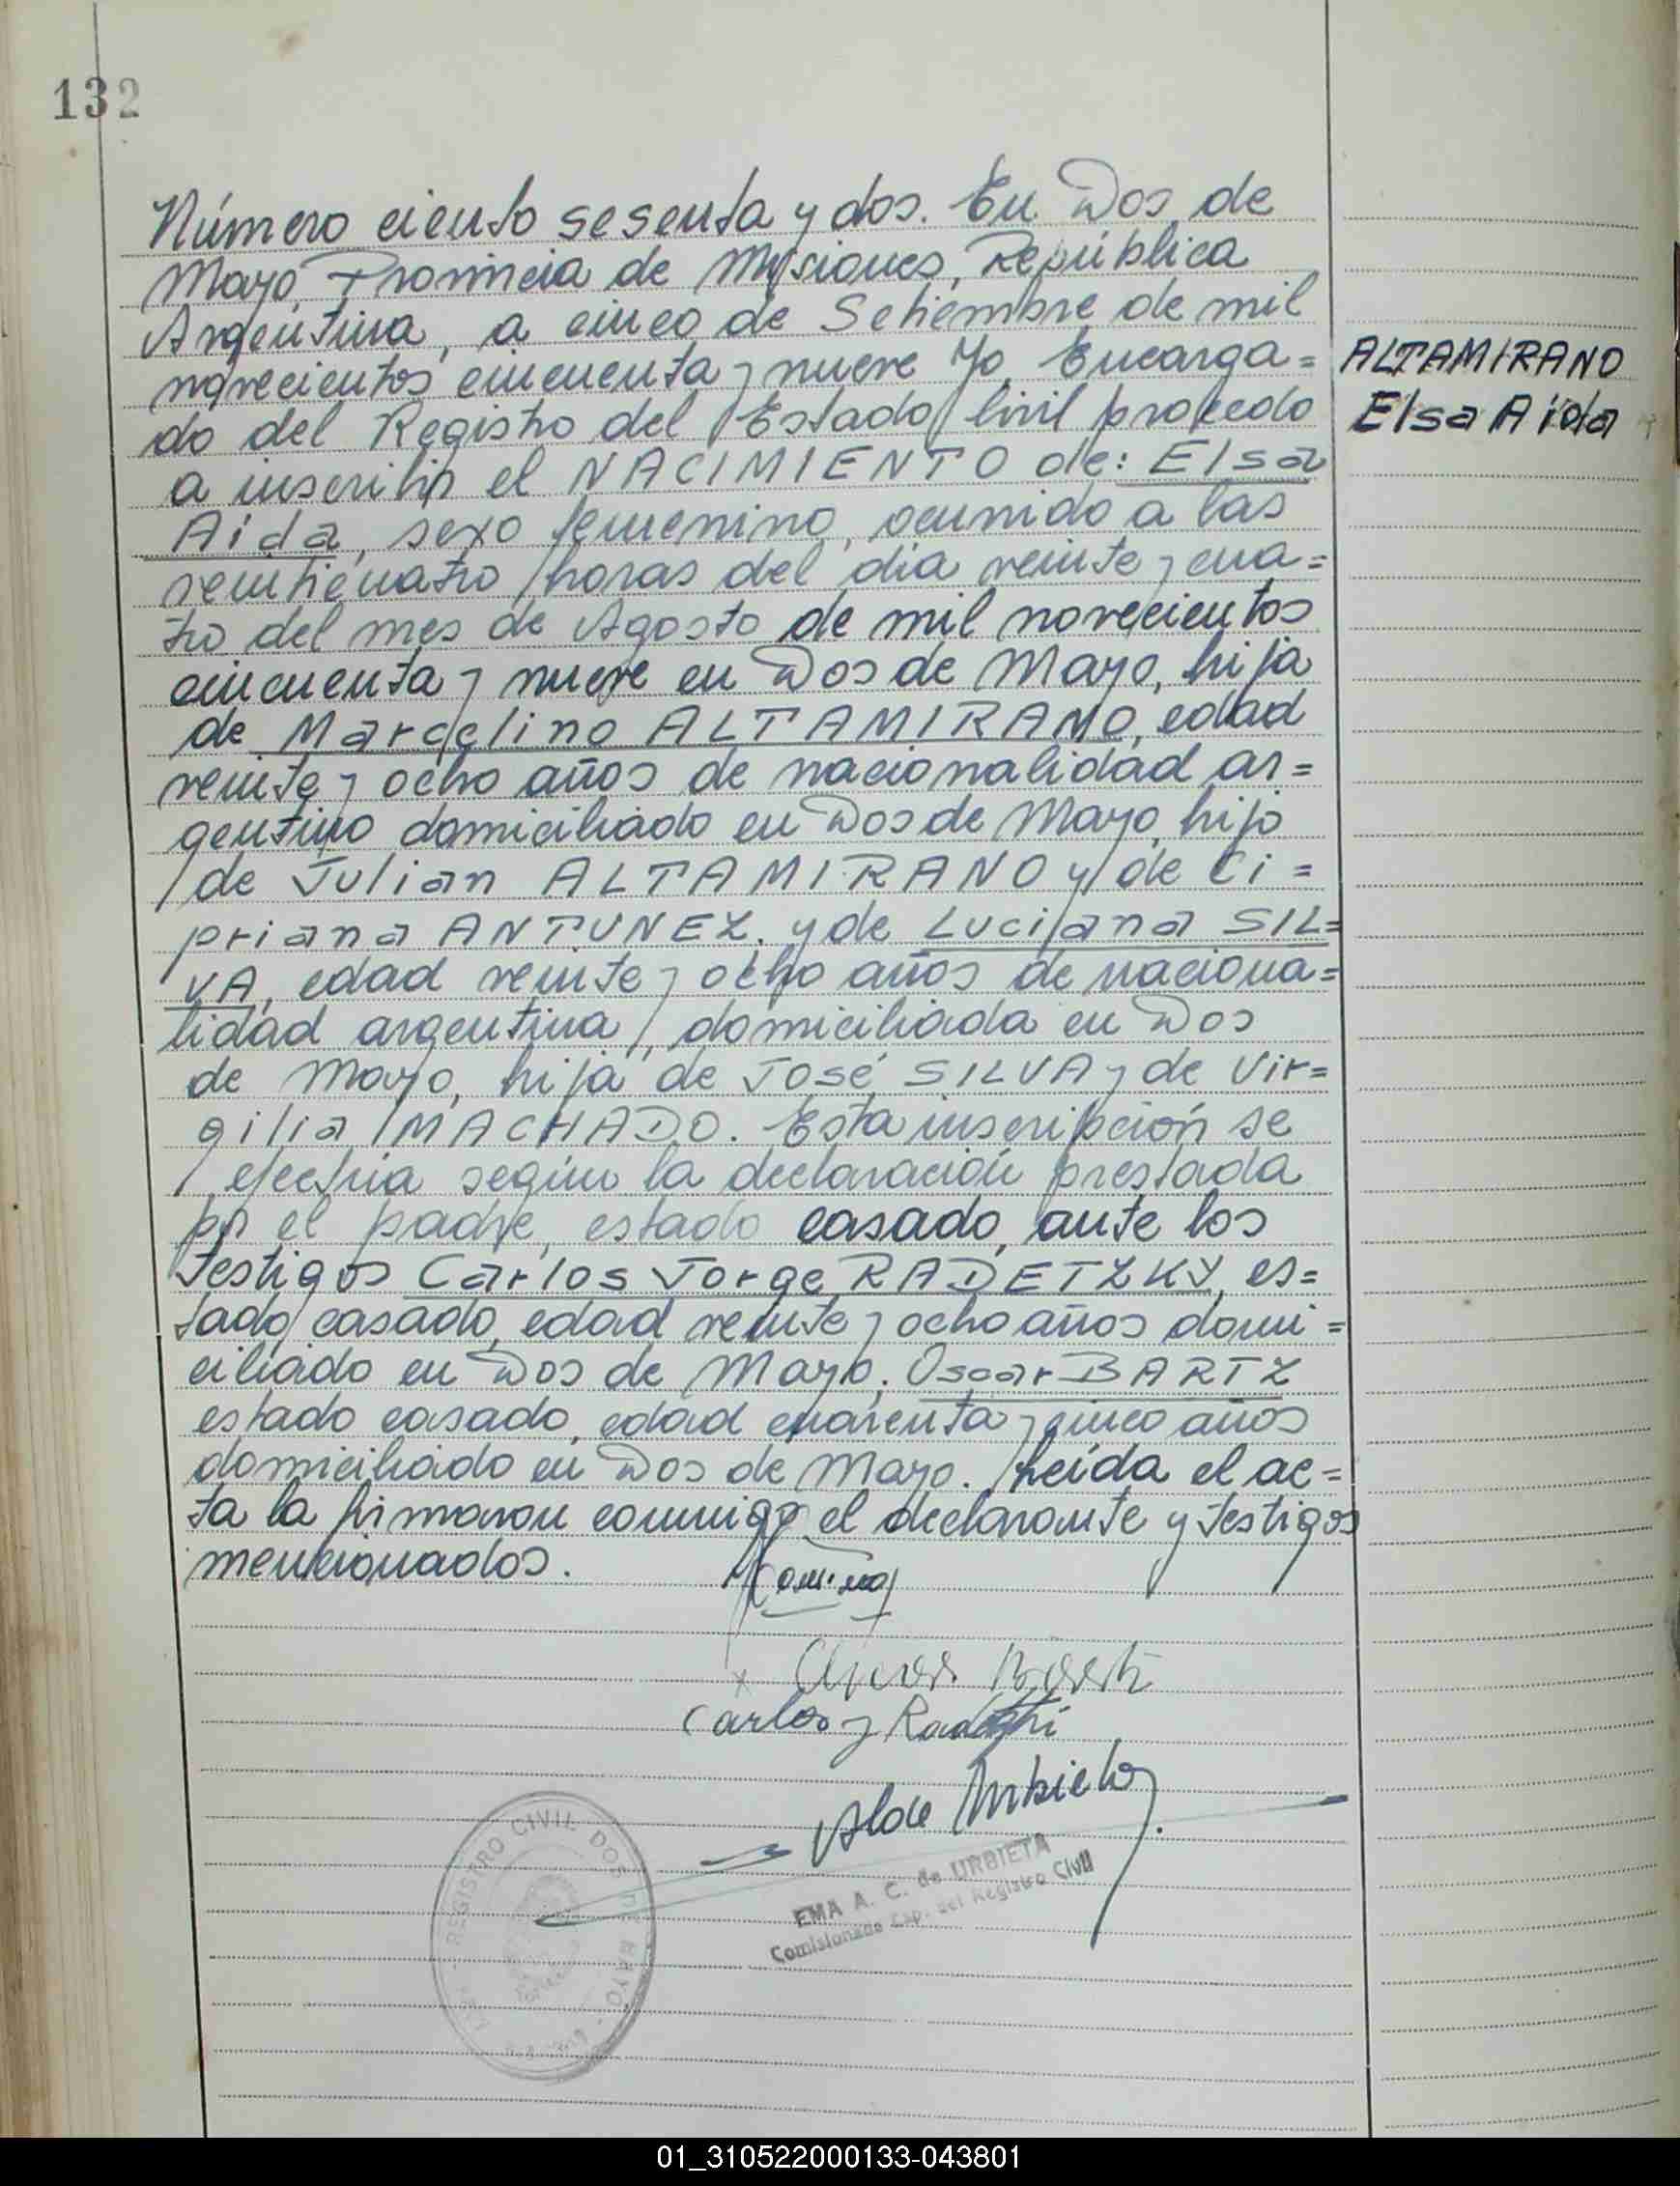 132
Número ciento sesenta y dos. En Dos de
Mayo, Provincia de Misiones, República
Argentina, a cinco de Setiembre de mil
novecientos cincuenta y nueve Yo, Encarga=
do del Registro del Estado Civil procedo
a inscribir el NACIMIENTO de: Elsa
Aida, sexo femenino, ocurrido a las
veinticuatro horas del día veinte y cua=
tro del mes de Agosto de mil novecientos
cincuenta y nueve en Dos de Mayo, hija
de Marcelino ALTAMIRANO, edad
veinte y ocho años de nacionalidad ar=
gentino domiciliado en Dos de Mayo, hijo
de Julian ALTAMIRANO y de Ci=
priana ANTUNEZ. y de Luciana SIL=
VA, edad veinte y ocho años de naciona=
lidad argentina, domiciliada en Dos
de Mayo, hija de José SILVA y de Vir=
gilia MACHADO. Esta inscripción se
efectúa según la declaración prestada
por el padre, estado casado, ante los
testigos Carlos Jorge RADETZKY, es=
tado casado, edad veinte y ocho años domi=
ciliado en Dos de Mayo, Oscar BARTZ
estado casado, edad cuarenta y cinco años
domiciliado en Dos de Mayo. Leída el ac=
ta la firmaron conmigo el declarante y testigos
mencionados.
ALTAMIRANO
Elsa Aida
Carlos J Radetzki
REGISTRO CIVIL DOS DE MAYO
EMA A. C. de URBIETA
Comisionado Esp. del Registro Civil
01_310522000133-043801